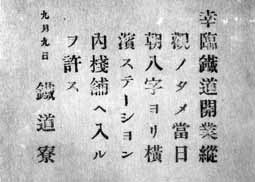 幸臨鐵道開業縱
觀ノタメ當日
朝八字ヨリ橫
濱ステーシヨン
內棧舖ヘ入ル
ヲ許ス
九月九日
鐵道寮